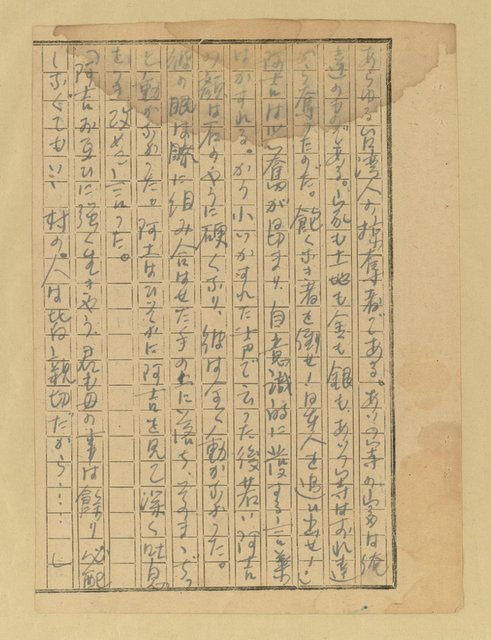 あらゆる台湾人の掠奪者である。あいつ等の富は俺
達の物である。家も土地も金も銀も、あいつ等はおれ達
から奪ったのだ。飽くなき者を倒せ！日本人を追い出せ！」
阿吉は興奮が昂まり、自意識的に発する言葉
はかすれる。かう小いかすれた声で云った後若い阿吉
の顔は石のやうに硬くなり、彼は全く動かなかった。
彼の眼は膝に組み合はせた手の上に落ち、そのまゝぢっ
と動かなかった。阿土はひそかに阿吉を見て深く吐息
をつき改めて言った。
「阿吉お互ひに強く生きやう、君も母の事は餘り心配
しなくてもいゝ、村の人は皆親切だから……」